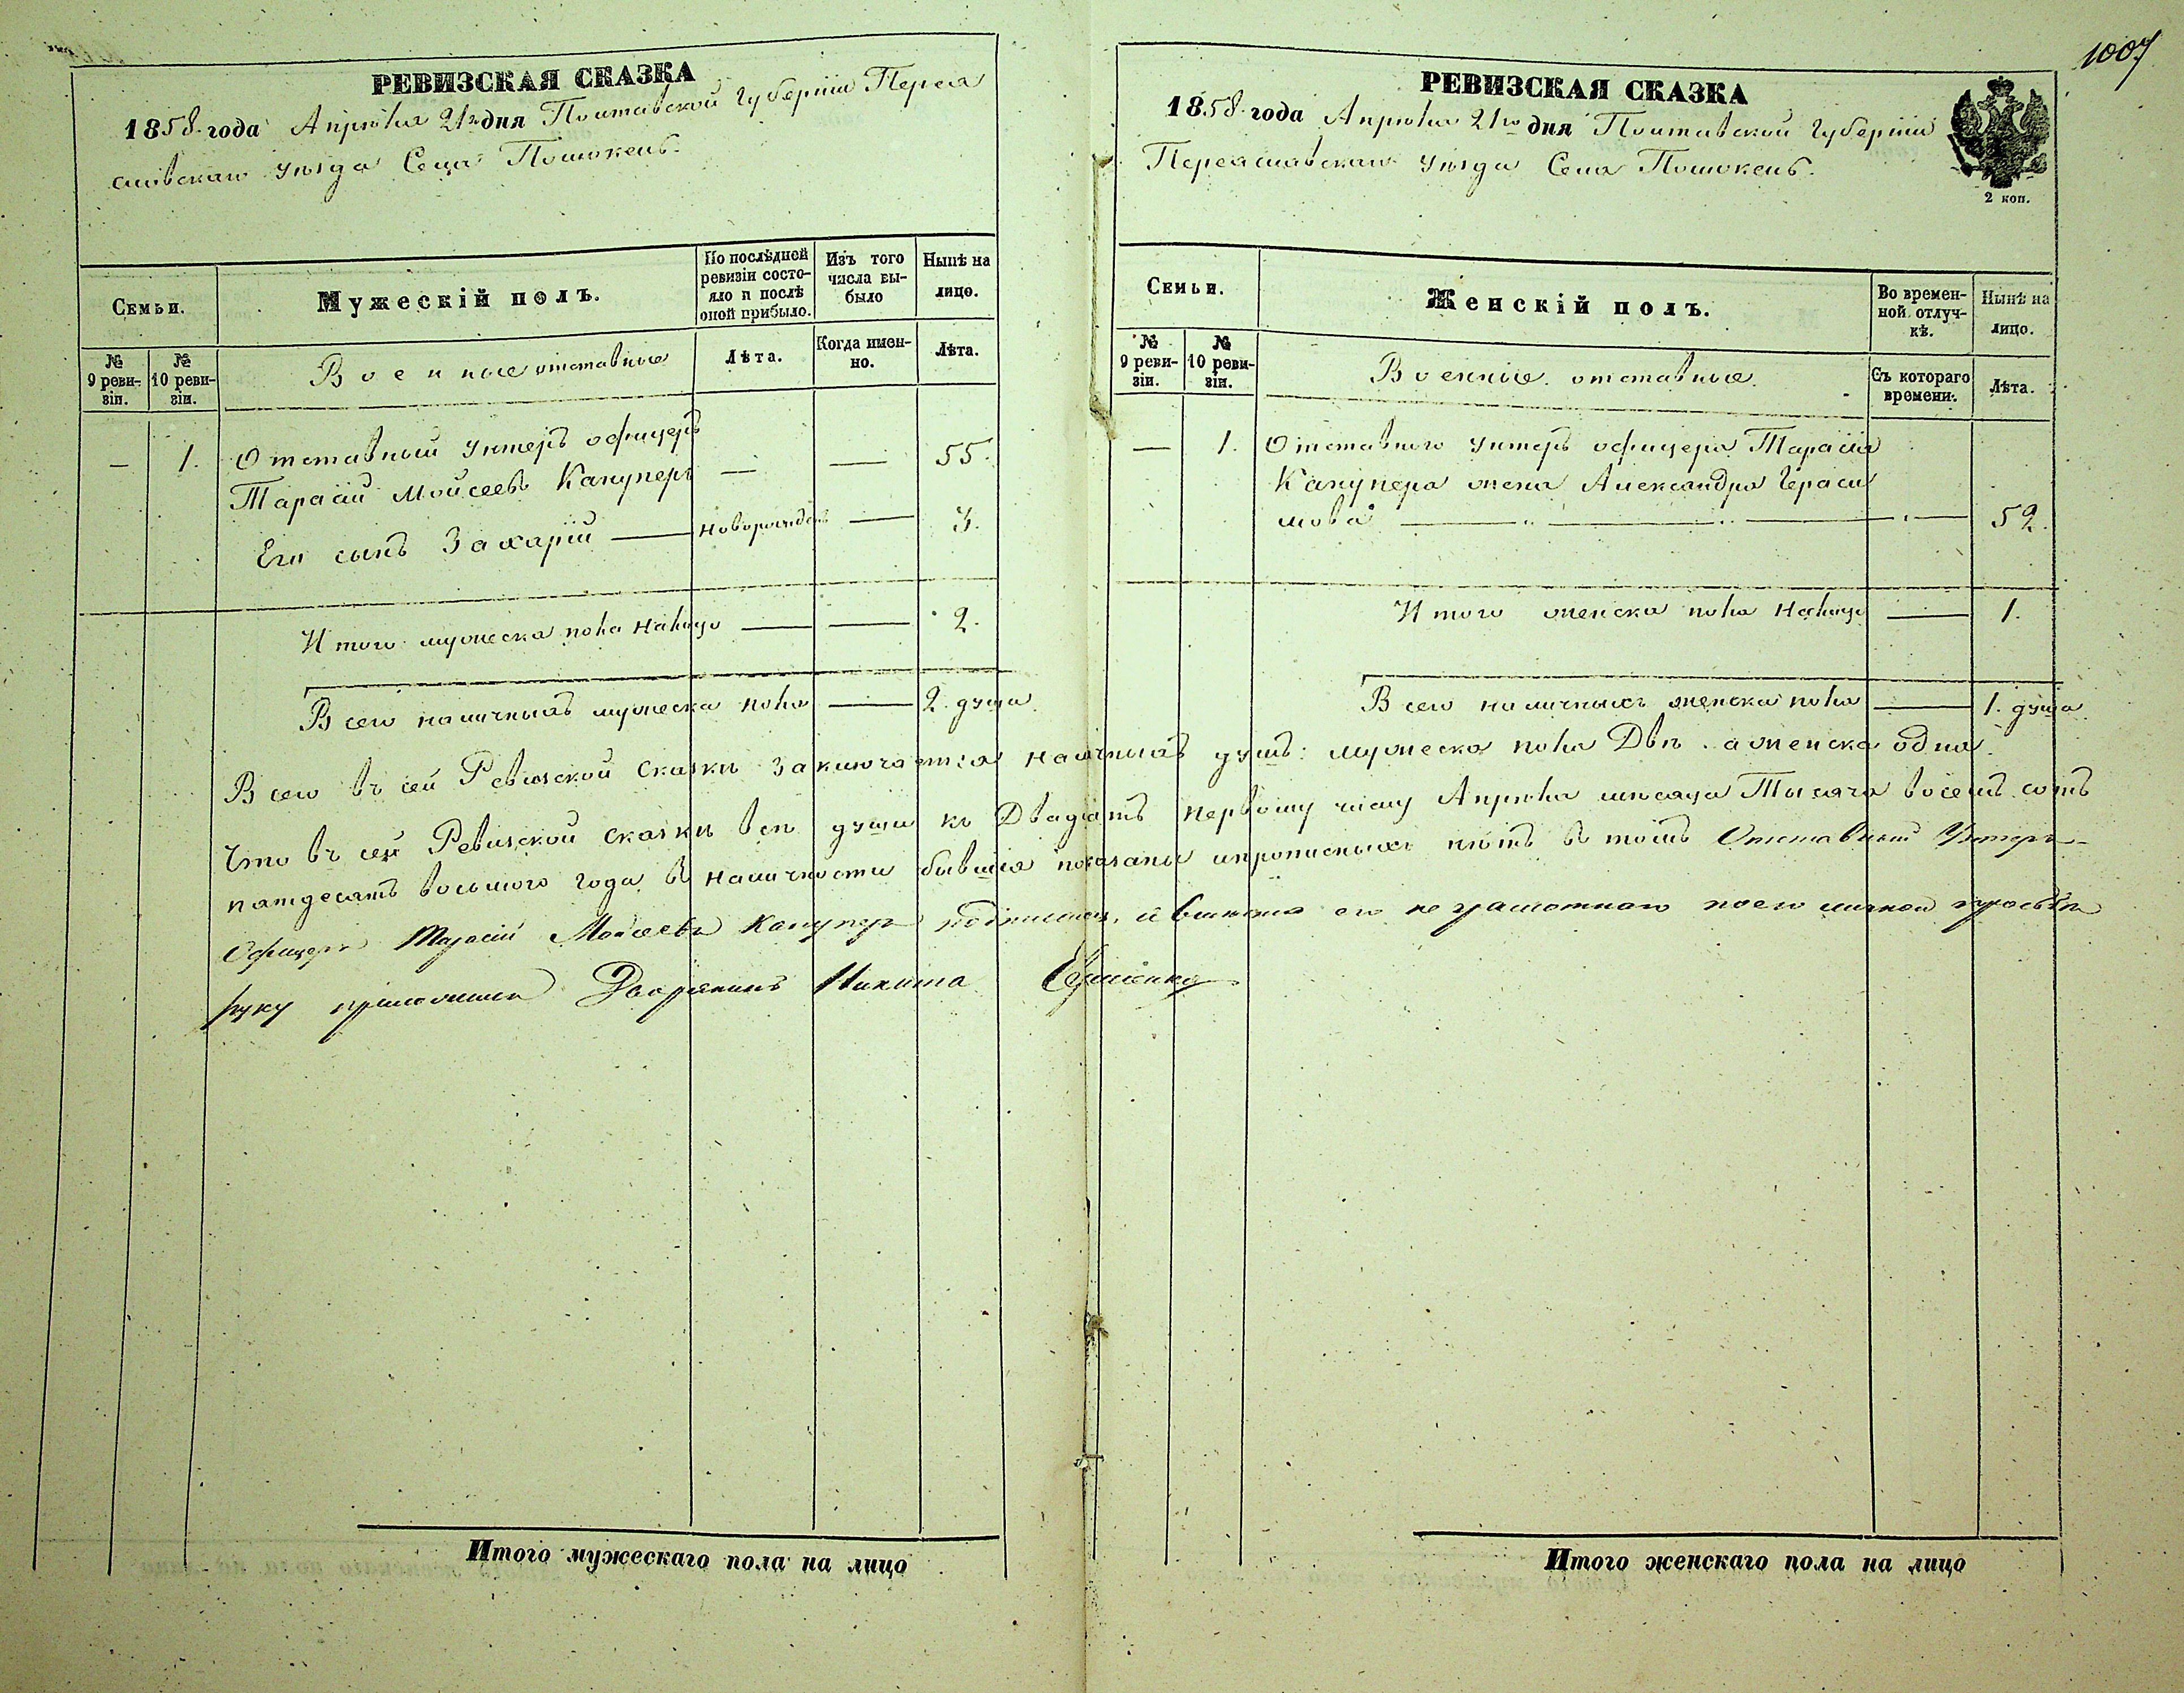 1007
РЕВИЗСКАЯ СКАЗКА
1858 года Апрѣля 21го дня Полтавской Губерніи Перея
славскаго уѣзда Села Положекъ.
Семьи.
Мужескій полъ.
По послѣдней ревизіи состояло и послѣ оной прибыло.
Изъ того числа выбыло
Нынѣ на лицо.
№ 9 ревизіи.
№ 10 ревизіи.
Военные отставные
Лѣта.
Когда именно.
Лѣта.
— 1. Отставный унтеръ офицеръ
Тарасій Моисеевъ Канунеръ — — 55.
Его сынъ Захарій — новорожденъ — 3.
Итого мужеска пола налицо — — 2.
Всего наличныхъ мужеска пола — 2. души
РЕВИЗСКАЯ СКАЗКА
1858 года Апрѣля 21го дня Полтавской Губерніи
Переяславскаго уѣзда Села Положекъ.
2 коп.
Семьи.
Женскій полъ.
Во временной отлучкѣ.
Нынѣ на лицо.
№ 9 ревизіи.
№ 10 ревизіи.
Военніе отставные.
Съ котораго времени.
Лѣта.
— 1. Отставного унтеръ офицера Тарасія
Канунера жена Александра Гераси
мова — 52.
Итого женска пола налицо — 1.
Всего наличныхъ женска пола — 1. душа
Всего въ сей Ревизской сказкѣ заключается наличныхъ душъ: мужеска пола Двѣ. а женска одна.
Что въ сей Ревизской сказкѣ всѣ души къ Двадцать первому числу Апрѣля мѣсяца Тысяча восемъ сотъ
пятдесятъ восьмого года въ наличности бывшія показаны и прописныхъ нѣтъ въ томъ Отставный Унтеръ-
Офицеръ Тарасій Моисеевъ Канунеръ подписался, а вмѣсто его неграмотнаго по его личной прозьбѣ
руку приложилъ Дворянинъ Никита
Итого мужескаго пола на лицо
Итого женскаго пола на лицо